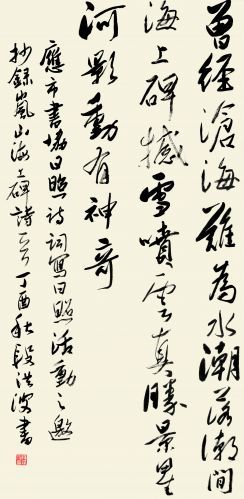 曾經滄海難為水潮落潮間
海上碑撼雪噴雲真勝景星
河影動有神奇
應市書協日照詩詞寫日照活動之邀
抄錄嵐山海上碑詩一首丁酉秋段洪波書